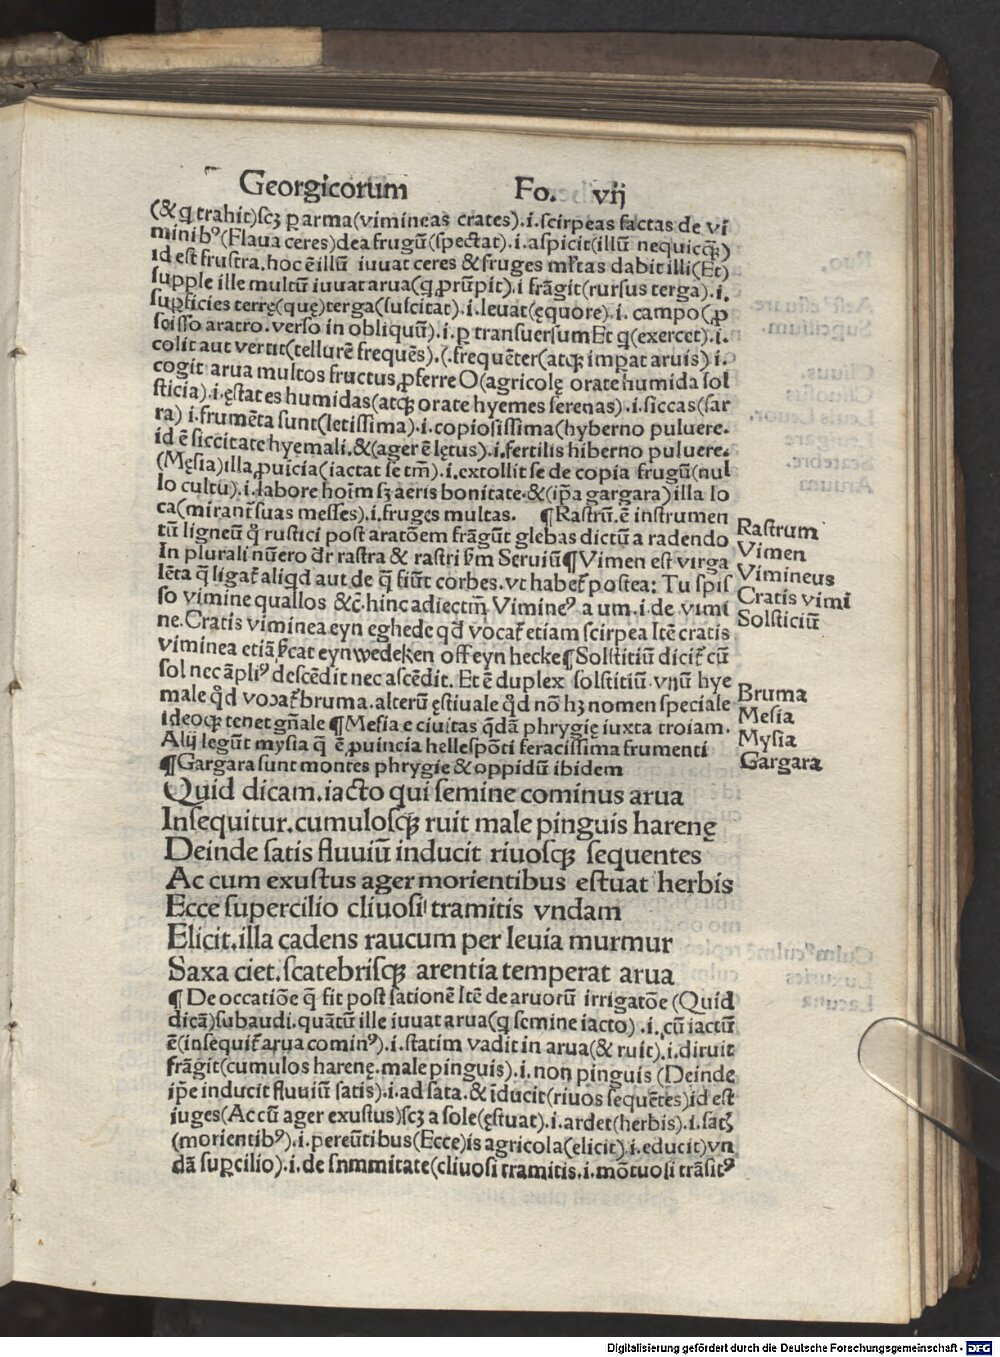 Georgicorum Fo. vij
(& q trahit)scꝫ ꝑ arma(vimineas crates).i.scirpeas factas de vi
minibꝰ(Flaua ceres)dea frugū(spectat).i.aspicit(illū nequicꝙ̄)
id est frustra.hoc ē illū iuuat ceres & fruges ml̄tas dabit illi(Et)
supple ille multū iuuat arua(q ꝓrūpit).i frāgit(rursus terga).i.
suꝑficies terrę(quę)terga(suscitat).i.leuat(ęquore).i. campo(ꝓ
scisso aratro.verso in obliquū).i.ꝑ transuersum Et q(exercet).i.
colit aut vertit(tellurē frequēs).(.frequēter(atqꝫ imꝑat aruis) i.
cogit arua multos fructus ꝓferre O(agricolę orate humida sol
sticia).i.ęstates humidas(atqꝫ orate hyemes serenas).i.siccas(far
ra) i.frumēta sunt(letissima).i.copiosissima(hyberno puluere.
id ē siccitate hyemali.&(ager ē lętus).i.fertilis hiberno puluere.
(Męsia)illa ꝓuīcia(iactat se tm̄).i.extollit se de copia frugū(nul
lo cultu).i.labore hoīm sꝫ aeris bonitate.&(ip̄a gargara)illa lo
ca(mirant᷑ suas messes).i.fruges multas. ¶Rastrū.ē instrumen
tū ligneū qͦ rustici post aratōem frāgūt glebas dictū a radendo
In plurali nūero dr̄ rastra & rastri ẜm Seruiū¶Vimen est virga
lēta q̄ ligat᷑ aliqd aut de q̄ fiūt corbes.vt habet᷑ postea: Tu spis
so vimine quallos &c̄.hinc adiectm̄ Vimineꝰ a um.i.de vimi
ne.Cratis viminea eyn eghede qd vocat᷑ etiam scirpea Itē cratis
viminea etiā ꝟcat eyn wedeken off eyn hecke¶Solstitiū dicit᷑ cū
sol nec āpliꝰ descēdit nec ascēdit. Et ē duplex solstitiū.vnū hye
male qͦd vocat᷑ bruma.alterū ęstiuale qͦd nō hꝫ nomen speciale
ideoqꝫ tenet gn̄ale ¶Mesia e ciuitas qͥdā phrygię iuxta troiam.
Alij legūt mysia q̄ ē ꝓuincia hellespōti feracissima frumenti
¶Gargara sunt montes phrygię & oppidū ibidem
Quid dicam.iacto qui semine cominus arua
Insequitur.cumulosqꝫ ruit male pinguis harenę
Deinde satis fluuiū inducit riuosqꝫ sequentes
Ac cum exustus ager morientibus estuat herbis
Ecce supercilio cliuosi tramitis vndam
Elicit.illa cadens raucum per leuia murmur
Saxa ciet.scatebrisqꝫ arentia temperat arua
¶ De occatiōe q̄ fit post sationē Itē de aruorū irrigatōe (Quid
dicā)subaudi.quātū ille iuuat arua(q semine iacto) .i.cū iactū
ē(insequit᷑ arua cominꝰ).i.statim vadit in arua(& ruit).i.diruit
frāgit(cumulos harenę.male pinguis).i.non pinguis (Deinde
ip̄e inducit fluuiū satis).i.ad sata.& īducit(riuos sequētes)id est
iuges(Ac cū ager exustus)scꝫ a sole(ęstuat).i.ardet(herbis).i.satꝭ
(morientibꝰ).i.pereūtibus(Ecce)is agricola(elicit).i.educit)vn
dā suꝑcilio).i.de snmmitate(cliuosi tramitis.i.mōtuosi trāsitꝰ
Rastrum
Vimen
Vimineus
Cratis vimi
Solsticiū
Bruma
Mesia
Mysia
Gargara
Digitalisierung gefördert durch die Deutsche Forschungsgemeinschaft - DFG